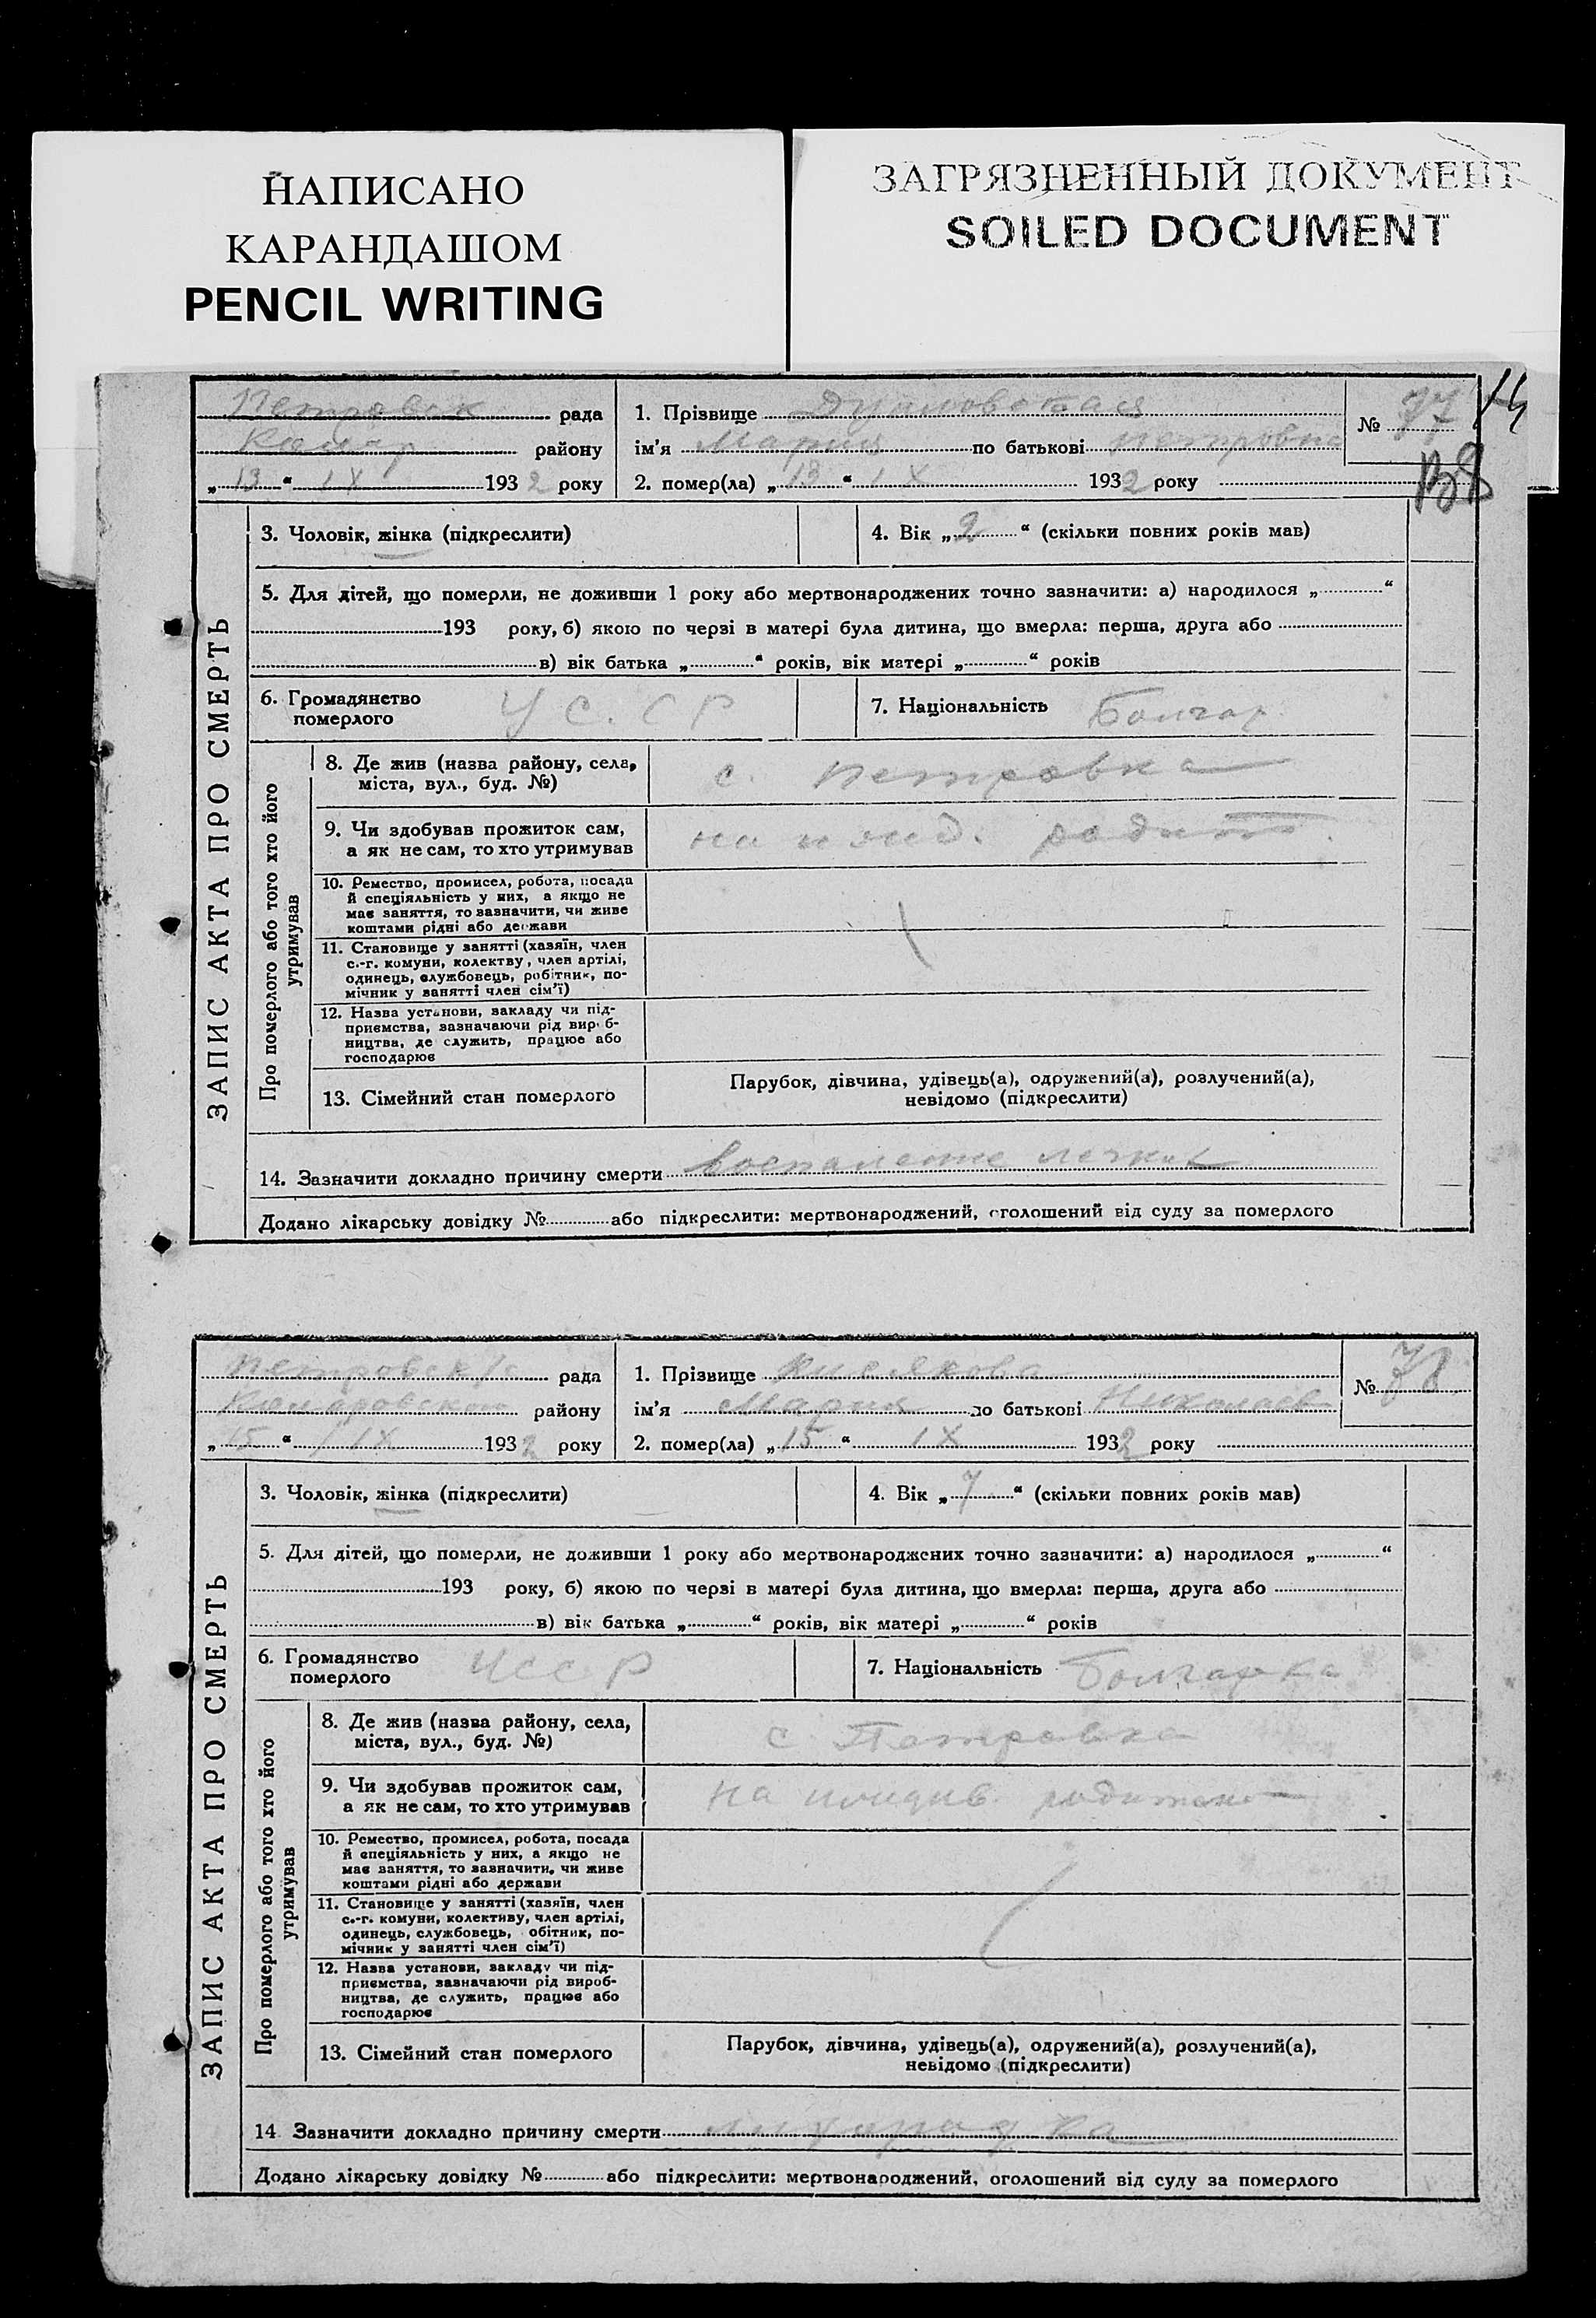 НАПИСАНО
КАРАНДАШОМ
PENCIL WRITING
ЗАГРЯЗНЕННЫЙ ДОКУМЕНТ
SOILED DOCUMENT
Петровск рада
Комар району
„13“ IX 1932 року
1. Прізвище
ім'я Мария по батькові Петровна
2. помер(ла) „13“ IX 1932 року
№ 77
14
ЗАПИС АКТА ПРО СМЕРТЬ
3. Чоловік, жінка (підкреслити)
4. Вік „2“ (скільки повних років мав)
5. Для дітей, що померли, не доживши 1 року або мертвонароджених точно зазначити: а) народилося „ “
193 року, б) якою по черзі в матері була дитина, що вмерла: перша, друга або
в) вік батька „ “ років, вік матері „ “ років
6. Громадянство
померлого
УС.СР
7. Національність Болгар.
Про померлого або того хто його
утримував
8. Де жив (назва району, села,
міста, вул., буд. №)
с. Петровка
9. Чи здобував прожиток сам,
а як не сам, то хто утримував
на ижд. родит.
10. Ремество, промисел, робота, посада
й спеціяльність у них, а якщо не
має заняття, то зазначити, чи живе
коштами рідні або держави
11. Становище у занятті (хазяїн, член
с.-г. комуни, колектву, член артілі,
одинець, службовець, робітник, по-
мічник у занятті член сім'ї)
12. Назва установи, закладу чи під-
приємства, зазначаючи рід вироб-
ництва, де служить, працює або
господарює
13. Сімейний стан померлого
Парубок, дівчина, удівець(а), одружений(а), розлучений(а),
невідомо (підкреслити)
14. Зазначити докладно причину смерти воспаление легких
Додано лікарську довідку № або підкреслити: мертвонароджений, оголошений від суду за померлого
Петровск/с рада
Комаровского району
„15“ IX 1932 року
1. Прізвище Кисякова
ім'я Мария по батькові Николаев
2. помер(ла) „15“ IX 1932 року
№ 78
ЗАПИС АКТА ПРО СМЕРТЬ
3. Чоловік, жінка (підкреслити)
4. Вік „7“ (скільки повних років мав)
5. Для дітей, що померли, не доживши 1 року або мертвонароджених точно зазначити: а) народилося „ “
193 року, б) якою по черзі в матері була дитина, що вмерла: перша, друга або
в) вік батька „ “ років, вік матері „ “ років
6. Громадянство
померлого
УССР
7. Національність Болгарка
Про померлого або того хто його
утримував
8. Де жив (назва району, села,
міста, вул., буд. №)
с Петровка
9. Чи здобував прожиток сам,
а як не сам, то хто утримував
на иждив. родителей
10. Ремество, промисел, робота, посада
й спеціяльність у них, а якщо не
має заняття, то зазначити, чи живе
коштами рідні або держави
11. Становище у занятті (хазяїн, член
с.-г. комуни, колективу, член артілі,
одинець, службовець, обітник, по-
мічник у занятті член сім'ї)
12. Назва установи, закладу чи під-
приємства, зазначаючи рід вироб-
ництва, де служить, працює або
господарює
13. Сімейний стан померлого
Парубок, дівчина, удівець(а), одружений(а), розлучений(а),
невідомо (підкреслити)
14 Зазначити докладно причину смерти лихорадка
Додано лікарську довідку № або підкреслити: мертвонароджений, оголошений від суду за померлого